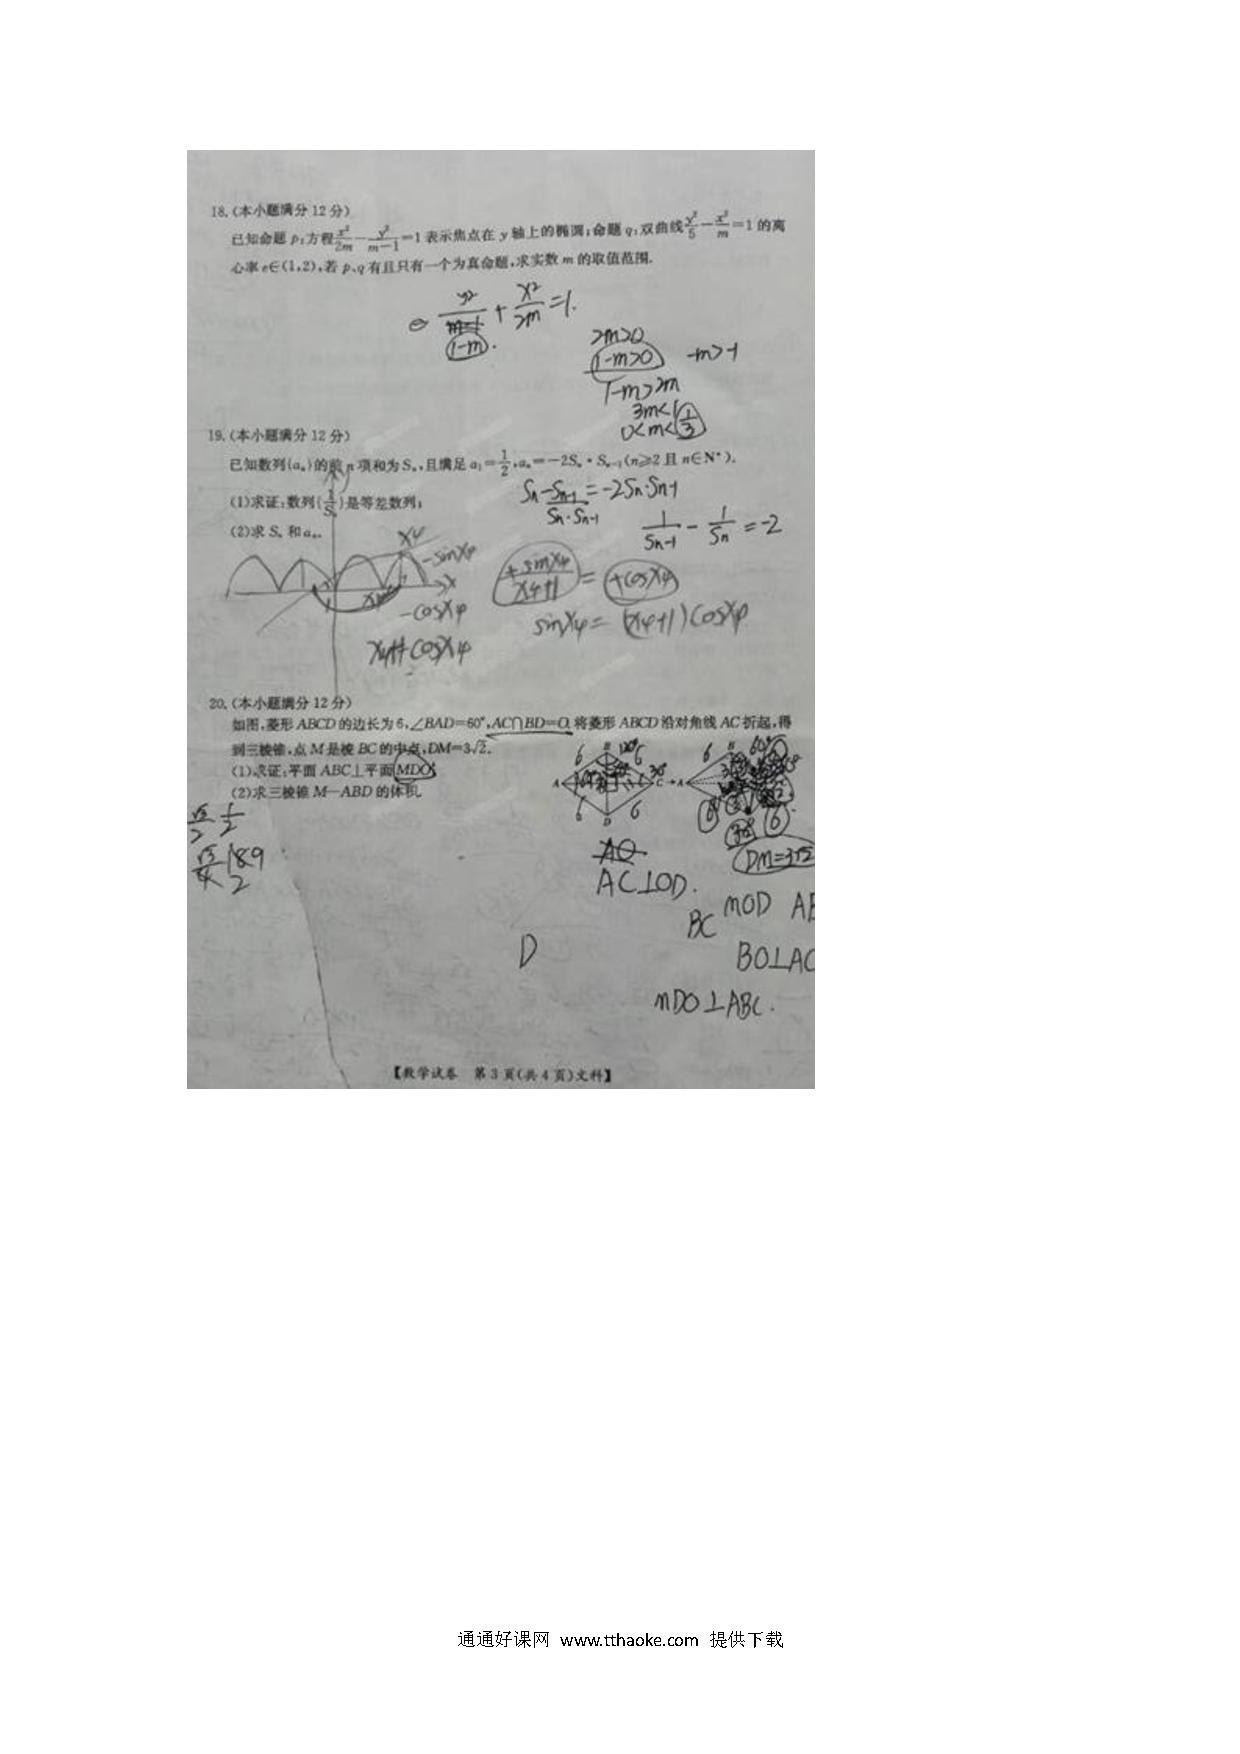 18.(本小题满分12分)
已知命题p:方程x²/2m-y²/(m-1)=1表示焦点在y轴上的椭圆;命题q:双曲线y²/5-x²/m=1的离
心率e∈(1,2),若p、q有且只有一个为真命题,求实数m的取值范围.
y²/(1-m)+x²/2m=1.
2m>0
1-m>0 -m>-1
1-m>2m
3m<1
0<m<1/3
19.(本小题满分12分)
已知数列{aₙ}的前n项和为Sₙ,且满足a₁=1/2,aₙ=-2Sₙ·Sₙ₋₁(n≥2且n∈N*).
(1)求证:数列{1/Sₙ}是等差数列;
(2)求Sₙ和aₙ.
Sn-Sn-1=-2Sn·Sn-1
Sn·Sn-1
1/Sn-1 - 1/Sn=-2
x4
-sinx4
x
-cosx4
+sinx4/x4+1=+cosx4
sinx4=(x4+1)cosx4
20.(本小题满分12分)
如图,菱形ABCD的边长为6,∠BAD=60°,AC∩BD=O.将菱形ABCD沿对角线AC折起,得
到三棱锥,点M是棱BC的中点,DM=3√2.
(1)求证:平面ABC⊥平面MDO;
(2)求三棱锥M—ABD的体积.
A B C D
6 6 6 6
DM=3√2
AC⊥OD.
BC MOD AB
BO⊥AC
D
MDO⊥ABC.
【数学试卷 第3页(共4页)文科】
通通好课网 www.tthaoke.com 提供下载